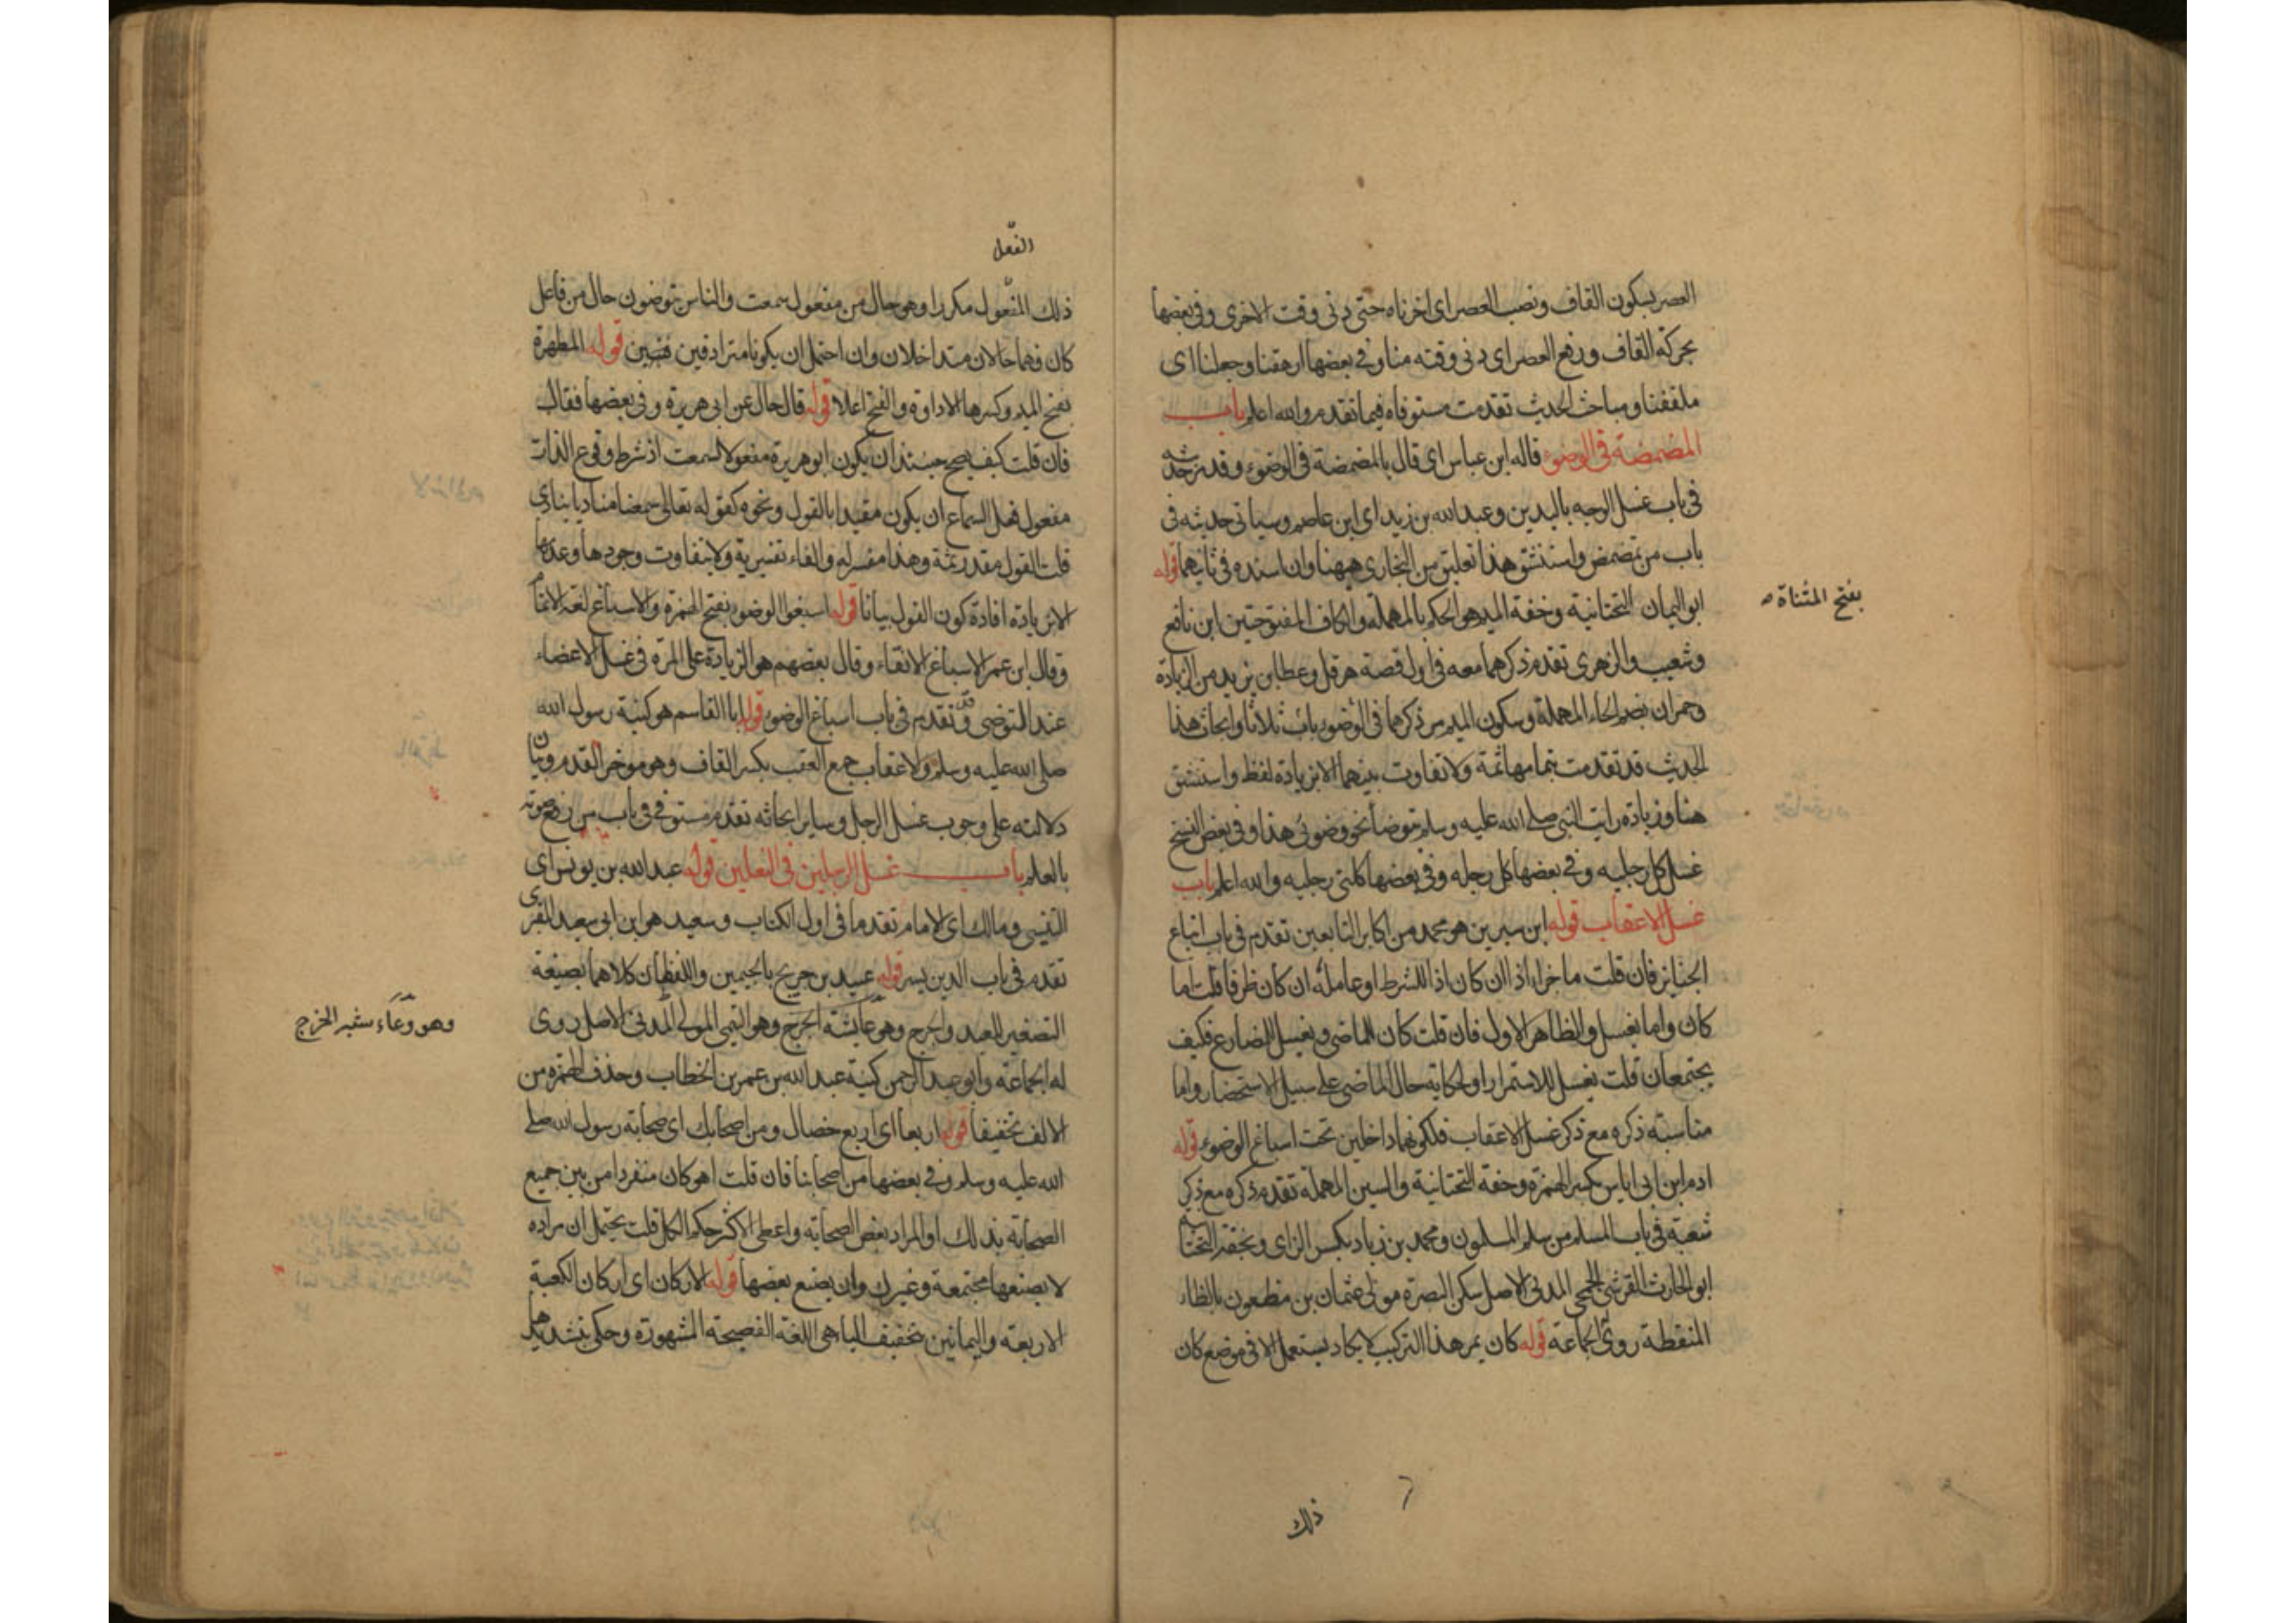 العصر بسكون القاف ونصب العصر اى اخرناه حتى دنى وقت الاخرى وفى بعضها
بحركة القاف ورفع العصر اى دنى وقته منا وفى بعضها ارهقنا وجعلنا اى
ملففنا ومباحث الحديث تقدمت مستوفاه فيما تقدم والله اعلم باب
المضمضة فى الوضوء قاله ابن عباس اى قال بالمضمضة فى الوضوء وقد مر حديثه
فى باب غسل الوجه باليدين وعبد الله بن زيد اى ابن عاصم وسياتى حديثه فى
باب من تمضمض واستنشق هذا تعليق من البخارى ههنا وان اسنده فى ثانيهما قوله
ابو اليمان التحتانية وخفة الميم هو الحكم بالمهملة والكاف المفتوحتين ابن نافع
بفتح المثناة صح
وشعيب والزهرى تقدم ذكرهما معه فى اول قصة هرقل وعطا بن يزيد من الزيادة
وحمران بضم الحاء المهملة وسكون الميم مر ذكرها فى الوضوء باب ثلاثا وابحاث هذا
الحديث قد تقدمت بتمامها ثمة ولا تفاوت بينهما الا بزيادة لفظ واستنشق
هنا وزيادة رايت النبى صلى الله عليه وسلم توضأ نحو وضوئى هذا وفى بعض النسخ
غسل كل رجليه وفى بعضها كل رجله وفى بعضها كلتى رجليه والله اعلم باب
غسل الاعقاب قوله ابن سيرين هو محمد من اكابر التابعين تقدم فى باب اتباع
الجنايز فان قلت ما جزاء اذا ان كان اذا للشرط او عامله ان كان ظرفا قلت اما
كان واما يغسل والظاهر الاول فان قلت كان للماضى ويغسل للمضارع فكيف
يجتمعان قلت يغسل للاستمرار او لحكاية حال الماضى على سبيل الاستحضار واما
مناسبة ذكره مع ذكر غسل الاعقاب فلكونهما داخلين تحت اسباغ الوضوء قوله
ادم ابن ابى اياس بكسر الهمزة وخفة التحتانية والسين المهملة تقدم ذكره مع ذكر
شعبة فى باب المسلم من سلم المسلمون ومحمد بن زياد بكسر الزاى وبخفة التحتانية
ابو الحارث القرشى الجمحى المدنى الاصل سكن البصرة مولى عثمان بن مظعون بالظاء
المنقطة روى الجماعة قوله كان يمر هذا التركيب لا يكاد يستعمل الا فى موضع كان
ذلك
الفعل
ذلك المفعول مكررا وهو حال من مفعول سمعت والناس يتوضون حال من فاعل
كان فهما حالان متداخلان وان احتمل ان يكونا مترادفين قوله المطهرة
بفتح الميم وكسرها الاداوة والفتح اعلا قوله قال حال عن ابى هريرة وفى بعضها فقال
فان قلت كيف يصح حينئذ ان يكون ابو هريرة مفعولا لسمعت اذ شرط وقوع الذات
مفعول فعل السماع ان يكون مقيدا بالقول ونحوه كقوله تعالى سمعنا مناديا ينادى
قلت القول مقدر ثمة وهذا مفسر له والفاء تفسيرية ولا يتفاوت وجودها وعدمها
الا بزيادة افادة كون القول بيانا قوله اسبغوا الوضوء بفتح الهمزة والاسباغ لغة الاتمام
وقال ابن عمر الاسباغ الانقاء وقال بعضهم هو الزيادة على المرة فى غسل الاعضاء
عند التوضى وقد تقدم فى باب اسباغ الوضوء قوله ابا القاسم هو كنية رسول الله
صلى الله عليه وسلم والاعقاب جمع العقب بكسر القاف وهو موخر القدم وبيان
دلالته على وجوب غسل الرجل وساير ابحاثه تقدم مستوفى فى باب من رفع صوته
بالعلم باب غسل الرجلين فى النعلين قوله عبد الله بن يونس اى
التنيسى ومالك اى الامام تقدما فى اول الكتاب وسعيد هو ابن ابى سعيد المقبرى
تقدم فى باب الدين يسر قوله عبيد بن جريج بالجيمين واللفظان كلاهما بصيغة
التصغير للعبد والجرج وهو التيمى المولى المدنى الاصل روى
وهو وعاء شبه الخرج
له الجماعة وابو عبد الرحمن كنية عبد الله بن عمر بن الخطاب وحذف الهمزة من
الالف تخفيفا قوله اربعا اى اربع خصال ومن اصحابك اى صحابة رسول الله صلى
الله عليه وسلم وفى بعضها من اصحابنا فان قلت اهو كان منفردا من بين جميع
الصحابة بذلك او المراد بعض الصحابة واعطى الاكثر حكم الكل قلت يحتمل ان مراده
لا يصنعها مجتمعة وغيرك وان يصنع بعضها قوله الاركان اى اركان الكعبة
الاربعة واليمانين بتخفيف اليا هى اللغة الفصيحة المشهورة وحكى تشديدها